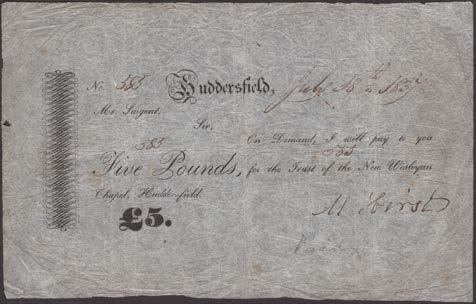 No. 585 Huddersfield, July 18th
Mr. Sargent,
Sir,
585 On Demand, I will pay to you
585
Five Pounds, for the Trust of the New Wesleyan
Chapel, Huddersfield.
£5. M Hirst